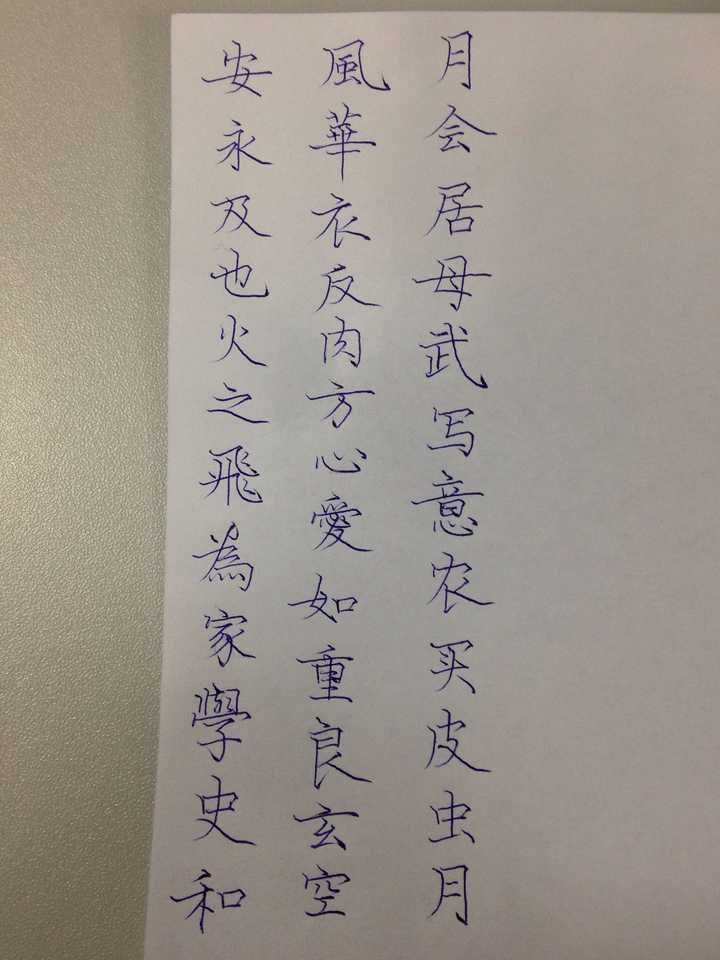 月会居母武写意农买皮虫月
風華衣反肉方心愛如重良玄空
安永及也火之飛為家學史和